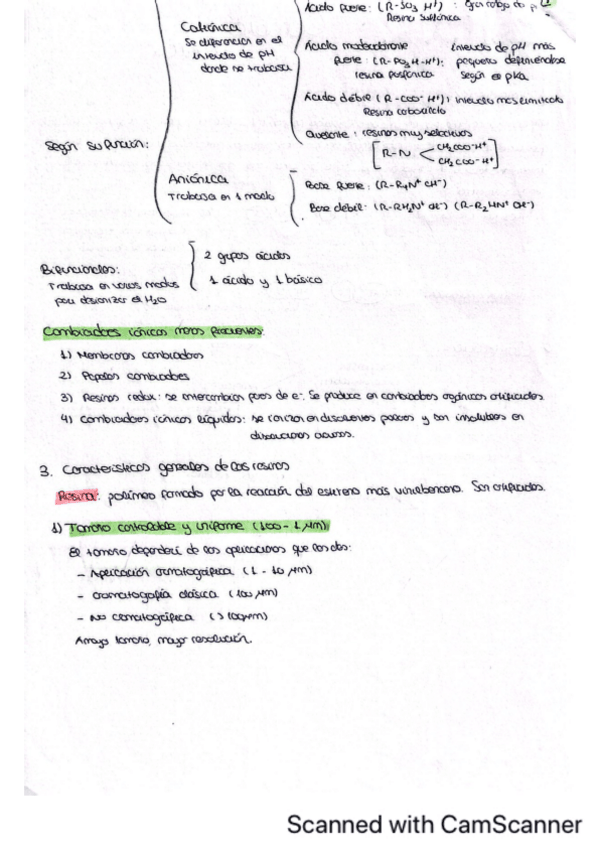 Ácido fuerte: (R-SO3 H+) :
Resina sulfónica
Catiónica
Se diferencian en el
intervalo de pH
donde se trabaja
Ácido moderadamente intervalo de pH más
fuerte: (R-PO3H-H+): pequeño dependiendo
resina fosfónica según el pka.
Ácido débil (R-COO- H+): intervalo más limitado
Resina carboxílica
Quelante: resinas muy selectivas
[R-N < CH2COO-H+
CH2COO-H+]
Según su función:
Aniónica
Trabaja en 1 modo
Base fuerte: (R-R4N+ OH-)
Base débil: (R-RH2N+ OH-) (R-R2HN+ OH-)
Bifuncionales:
Trabaja en varios modos
para desionizar el H2O
2 grupos ácidos
1 ácido y 1 básico
Cambiadores iónicos menos frecuentes:
1) Membranas cambiadoras
2) Papeles cambiadores
3) Resinas redox: se intercambian pares de e-. Se produce en cambiadores orgánicos
4) Cambiadores iónicos líquidos: se ionizan en disolventes polares y son insolubles en
disoluciones acuosas.
3. Características generales de las resinas
Resina: polímero formado por la reacción del estireno más vinilbenceno. Son
1) Tamaño controlable y uniforme (100 - 1 µm)
El tamaño dependerá de las aplicaciones que les des:
- Aplicación cromatográfica (1 - 10 µm)
- Cromatografía clásica (100 µm)
- No cromatográfica (>100µm)
tamaño, mayor resolución.
Scanned with CamScanner